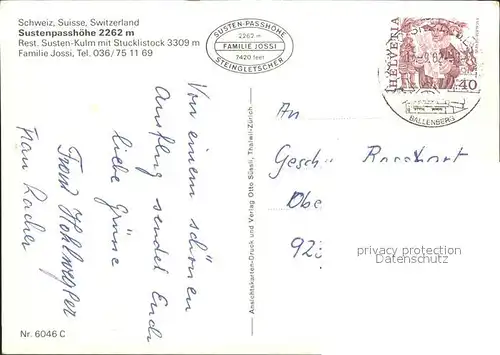 Schweiz, Suisse, Switzerland
Sustenpasshöhe 2262 m
Rest. Susten-Kulm mit Stucklistock 3309 m
Familie Jossi, Tel. 036/75 11 69
SUSTEN-PASSHÖHE
2262 m
FAMILIE JOSSI
7420 feet
STEINGLETSCHER
HELVETIA
40
BALLENBERG
Von einem schönen
Ausflug sendet Euch
liebe Grüsse
Frau Racher
An
Gesch
Obe
92
privacy protection
Ansichtskarten-Druck und Verlag Otto Süssli, Thalwil-Zürich
Nr. 6046 C